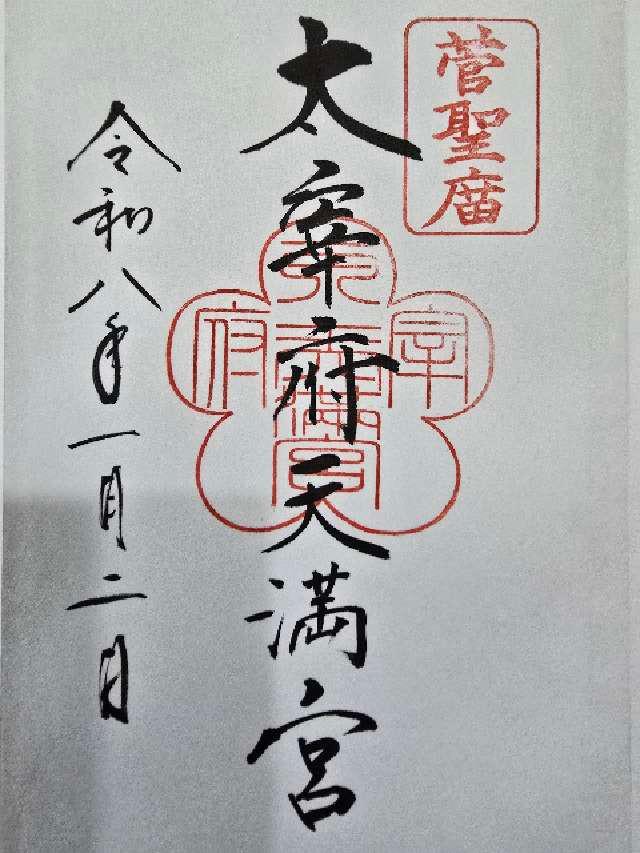 菅聖廟
太宰府天満宮
令和八年一月二日
太
宰
府
天満宮